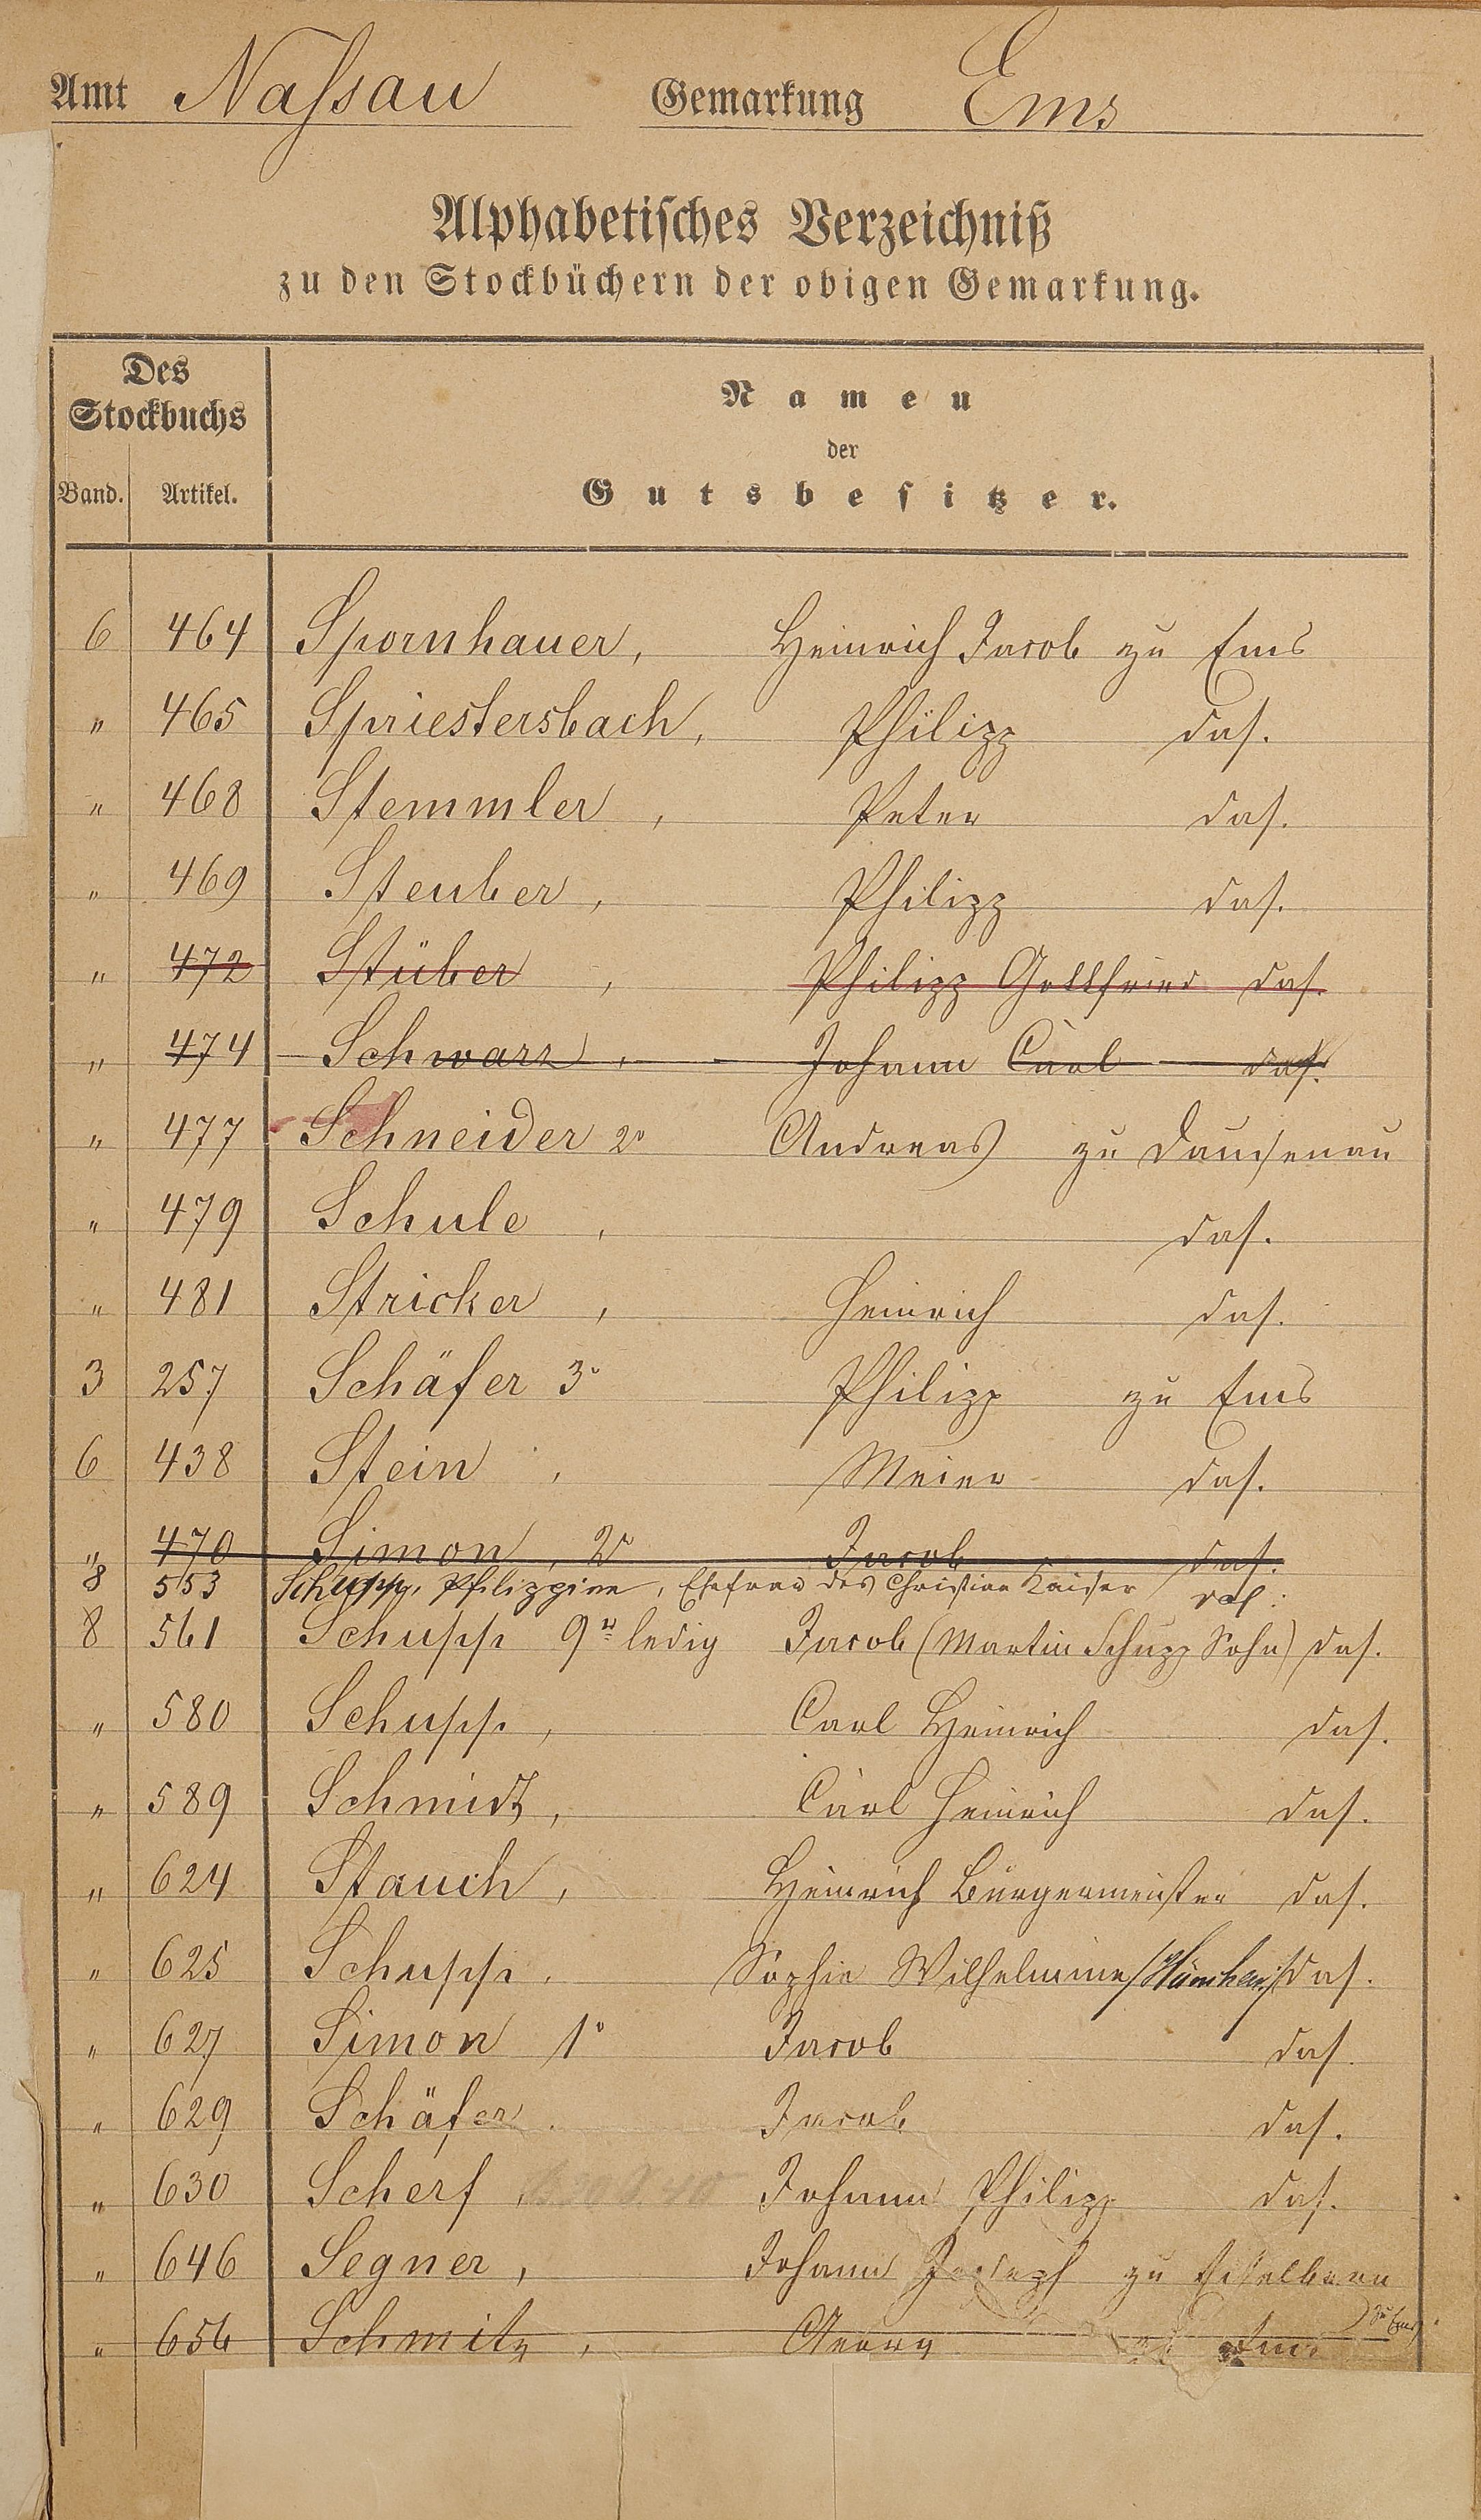 Amt Naſsau Gemarkung Ems
Alphabetiſches Verzeichniß
zu den Stockbüchern der obigen Gemarkung.
Des
Stockbuchs
Band. Artikel.
Namen
der
Gutsbeſitzer.
6 464 Spornhauer, Heinrich Jacob zu Ems
" 465 Spriestersbach, Philipp daſ.
" 468 Stemmler, Peter daſ.
" 469 Steuber, Philipp daſ.
" 472 Stüber, Philipp Gottfried daſ.
" 474 Schwarz, Johann Carl daſ.
" 477 Schneider 2r Andreas zu Dauſenau
" 479 Schule, daſ.
" 481 Stricker, Heinrich daſ.
3 257 Schäfer 3r Philipp zu Ems
6 438 Stein, Meier daſ.
" 470 Simon, 2r Jacob daſ.
8 553 Schupp, Philippine, Ehefrau des Christian Kaiser daſ.
8 561 Schupp 9r ledig Jacob (Martin Schupp Sohn) daſ.
" 580 Schupp, Carl Heinrich daſ.
" 589 Schmidt, Carl Heinrich daſ.
" 624 Stauch, Heinrich Bürgermeister daſ.
" 625 Schupp, Sophie Wilhelmine daſ.
" 627 Simon 1r Jacob daſ.
" 629 Schäfer. Jacob daſ.
" 630 Scherf, Johann Philipp daſ.
" 646 Segner, Johann Joseph zu
" 656 Schmitz, Georg Ems